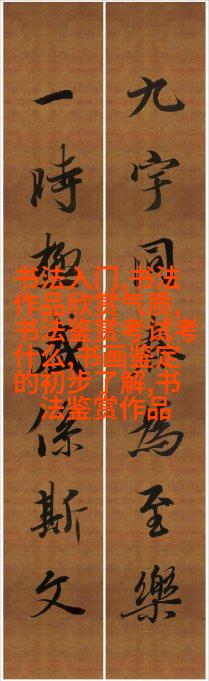 九宇同為至樂
一時極係斯文
书法入门,书法
作品欣赏气质,
书法鉴赏考试考
什么,书画鉴定
的初步了解,书
法鉴赏作品